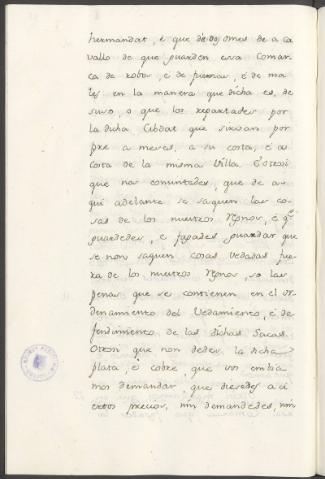 hermandat, é que dedes omes de a ca
vallo de que guarden esa Comar
ca de robos, é de fuerzas, é de ma
les en la manera que dicha es, de
suso, o que los repartades por
la dicha Cibdat que sirvan por
pre a meses, a su costa, é a
costa de la misma Villa. E otrosi
que nos consintades, que de a
qui adelante se saquen las co
sas de los nuestros Regnos, é qe
guardedes, e fagades guardar que
se non saquen cosas vedadas fue
ra de los nuestros Regnos, so las
penas que se contienen en el or
denamiento del Vedamiento, é de
fendimiento de las dichas Sacas.
Otrosi que non dedes la dicha
plata, é cobre, que vos embia
mos demandar, que diesedes a ci
ertos precios, nin demandedes, nin